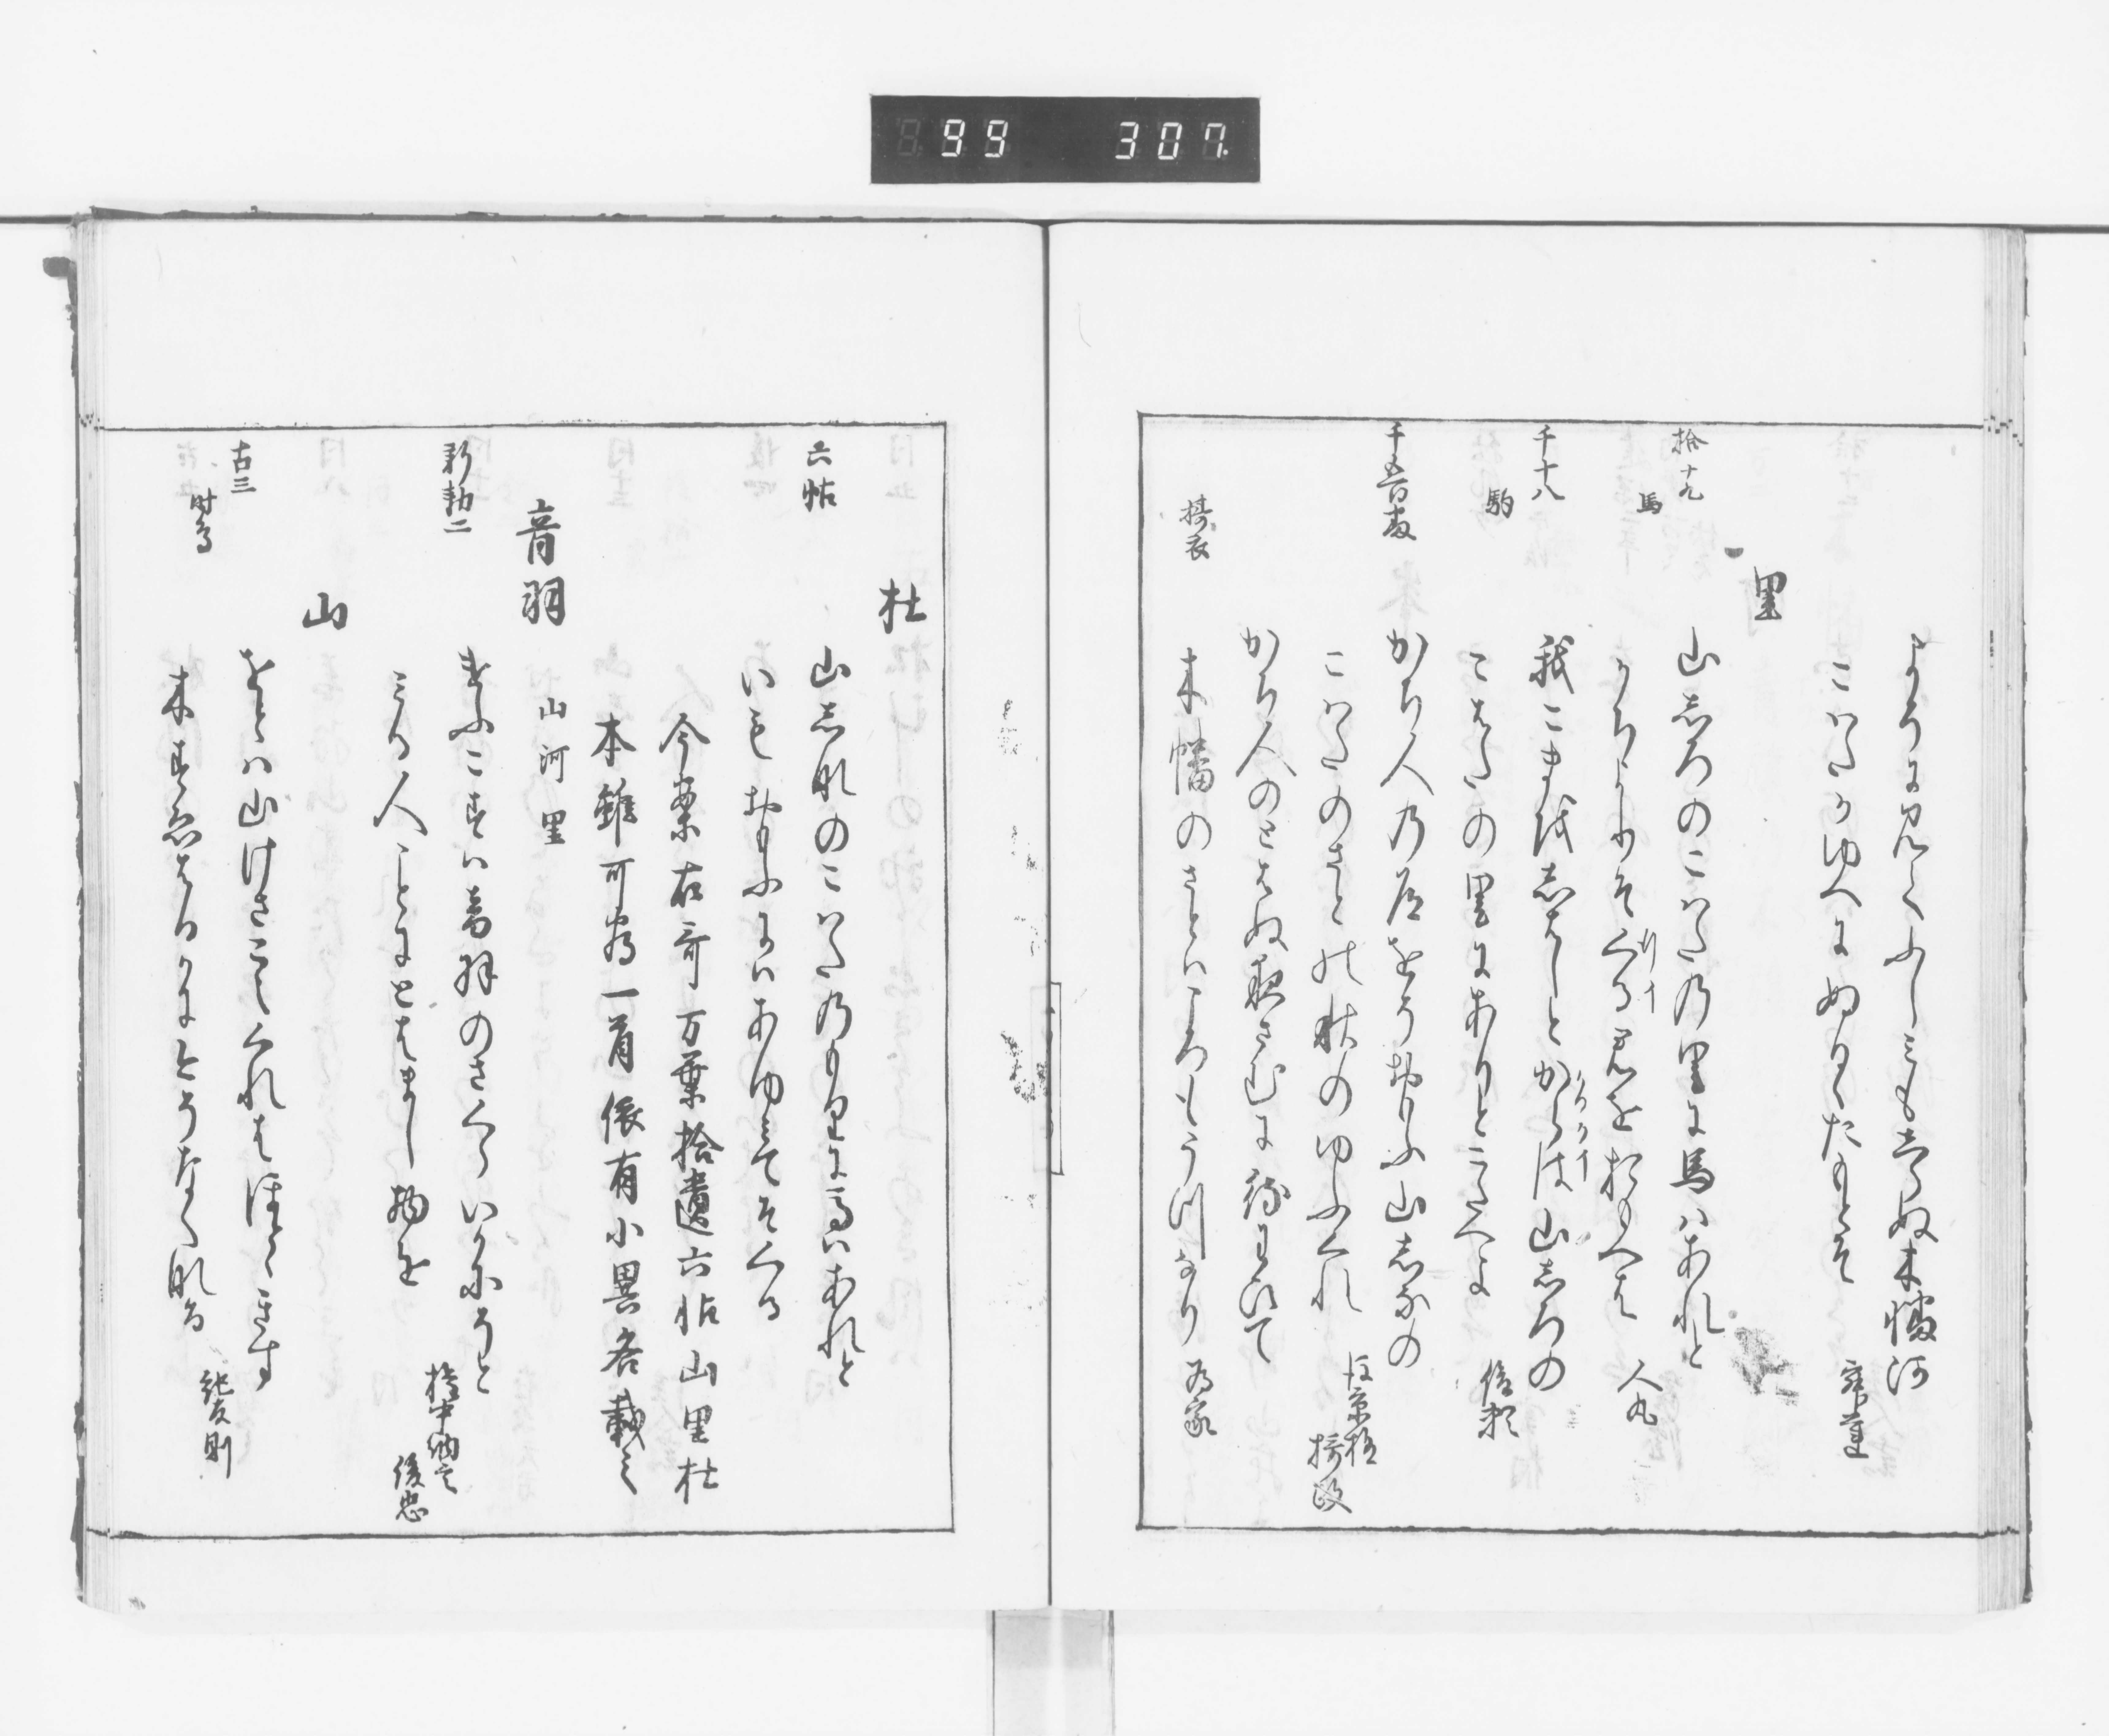 99 307
こはたかゆへにぬるゝたもとそ 寂蓮
里
拾十九 山しろのこはたの里に馬はあれと
馬 かちよりそくる君を思へは 人丸
千十八 我こまをしはしとかるは山しろの
駒 こはたの里にありとこたへよ 俊頼
千五百番 かち人の道をそおもふ山しなの
こはたのさとの秋のゆふくれ 後京極摂政
かち人のとはぬ夜さむに待わひて
擣衣 木幡のさとはころもうつなり 為家
杜
六帖 山しなのこはたのもりに馬はあれと
おもふにはあゆみてそくる
今案右哥万葉拾遺六帖山里杜
本雖可為一首依有小異各載之
音羽 山 河 里
新勅二 けふこすは音羽のさくらいかにそと
みる人ことにとはまし物を 権中納言俊忠
山
古三 をとは山けさこえくれはほとゝきす
時鳥 木すゑはるかに今そなくなる 紀友則